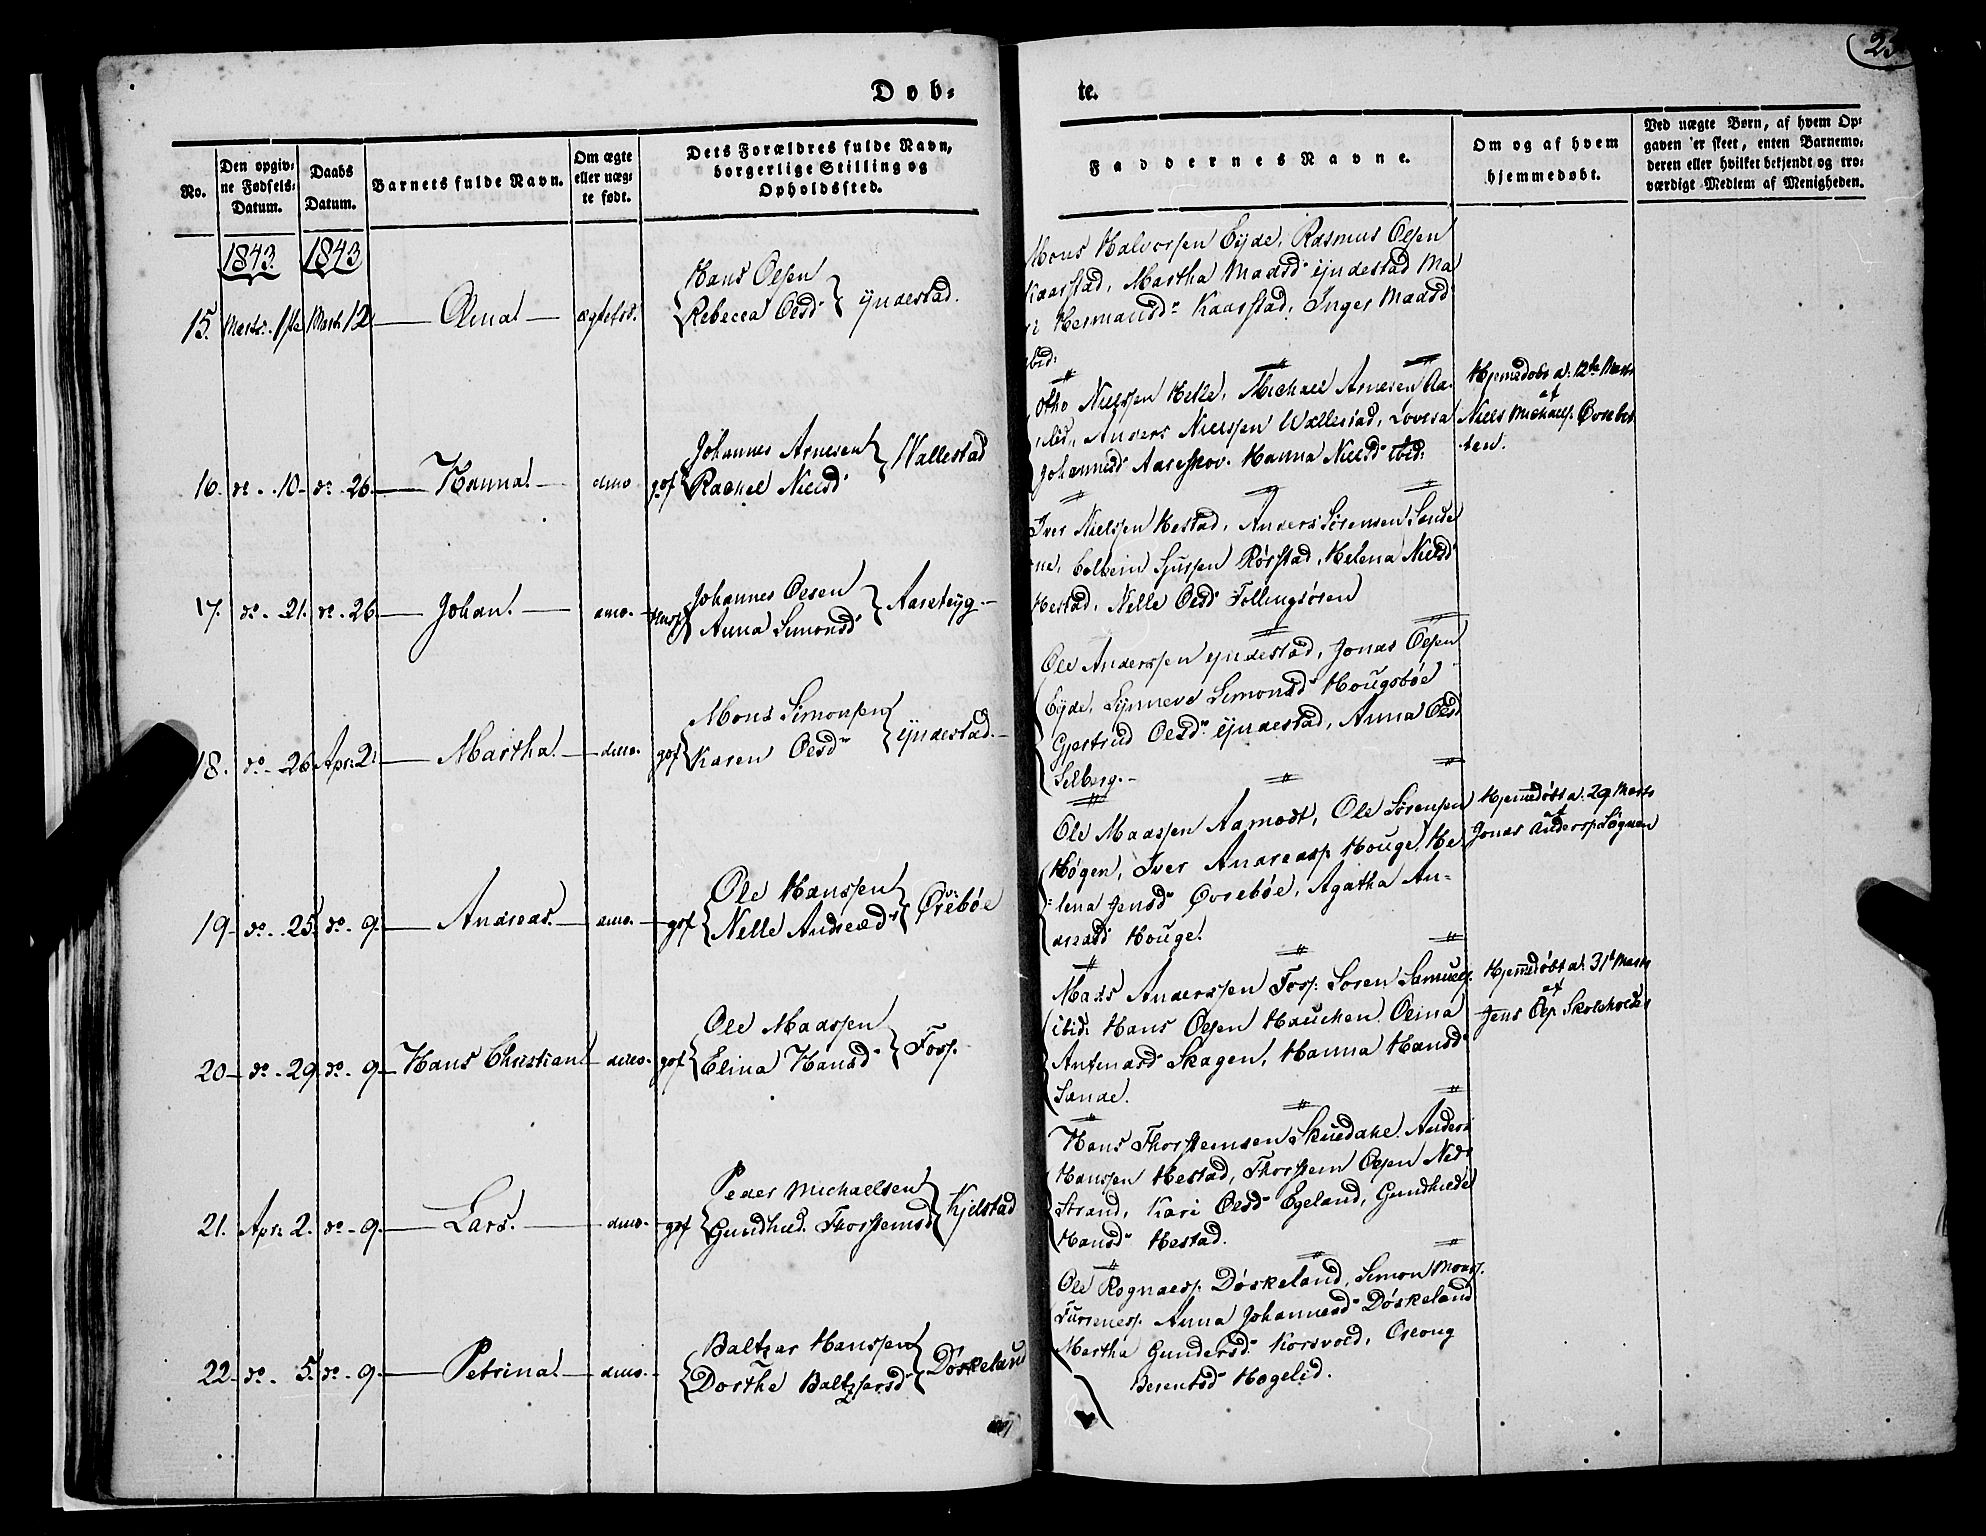 Døb-
te.
No.
Den opgiv-
ne Fødsels-
Datum.
Daabs
Datum.
Barnets fulde Navn.
Om ægte
eller uæg-
te født.
Dets Forældres fulde Navn,
borgerlige Stilling og
Opholdssted.
Faddernes Navne.
Om og af hvem
hjemmedøbt.
Ved uægte Børn, af hvem Op-
gaven er skeet, enten Barnemo-
deren eller hvilket bekjendt og tro-
værdigt Medlem af Menigheden.
1843. 1843
15. Marts. 1ste Marts 12 Olina ægtefød.
Hans Olsen
Rebecca Olsd Yndestad.
Mons Halvorsen Eyde, Rasmus Olsen
Kaarstad, Martha Madsd Yndestad Ma
Hermansd Kaarstad, Inger Madsd
ibid:
16. do. 10 do 26. Hanna dmo
gbf Johannes Arnesen
Rachel Nielsd Wallestad
Otho Nielssen Helle, Michael Arnesen Aa-
Anders Nielssen Wallestad, Lovisa
Johannesd Aareskov. Hanna Nielsd ibid:
Hjemmedøbt d. 12te Marts
af
Niels Michaels. Øvrebot-
ten.
17. do. 21. do. 26 Johan. dmo.
Johannes Olsen
Anna Simonsd
Iver Nielssen Hestad, Anders Sørensen Sande
ne, Sjursen Rørstad, Helena Nielsd
Hestad, Nelle Olsd Follingsøren
18. do. 26 Apr. 2. Martha. dmo.
gbf Mons Simonsen
Karen Olsd Yndestad.
Ole Anderssen Yndestad, Jonas Olsen
Eyde, Synneve Simonsd Hougsbøe
Gjertrud Olsd Yndestad, Anna Olsd
Selberg.
19. do. 25. do. 9. Andreas. dmo.
gbf Ole Hanssen
Nelle Andreasd Øvrebøe
Ole Maassen Aamodt, Ole Sørensen
Høgen, Iver Andreass. Houge, He-
lena Jensd Øvrebøe, Agatha An-
dreasd Houge.
Hjemmedøbt d. 29 Marts
af
Jonas Anders. Sögnen
20. do. 29. do. 9. Hans Christian dmo.
gbf Ole Maassen
Elina Hansd Fors.
Mads Anderssen Fors. Soren Samuels.
ibid. Hans Olsen Hauchen. Olina
Antonsd Skagen, Hanna Hansd
Sande.
Hjemmedøbt d. 31te Marts
af
Jens Ols. Skoleholder
21. Apr. 2. do. 9. Lars. dmo.
gbf Peder Michaelsen
Gundhild Thorstensd Kjelstad
Hans Thorstensen Skuedahl. Anders
Hanssen Hestad, Thorsten Olsen Ned-
Strand, Kari Olsd Egeland, Gundhilde
Hansd Hestad.
22. do. 5. do. 9. Petrina dmo.
Baltzar Hanssen
Dorthe Baltzarsd Døskeland
Ole Rognaes. Døskeland, Simon Mons.
Anna Johannesd Døskeland
Martha Gundersd Korsvold, Oleong
Berentsd Hagelid.